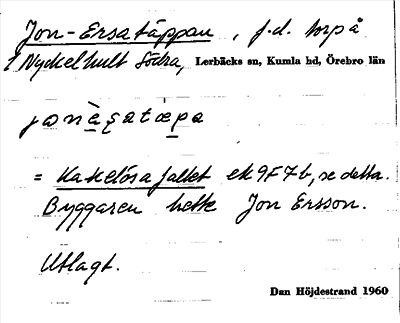 Jon-Ersatäppan, f.d. torp å
1 Nyckelhult Södra, Lerbäcks sn, Kumla hd, Örebro län
= Kakelösa fallet ek 9F7b, se detta.
Byggaren hette Jon Ersson.
Utlagt.
Dan Höjdestrand 1960